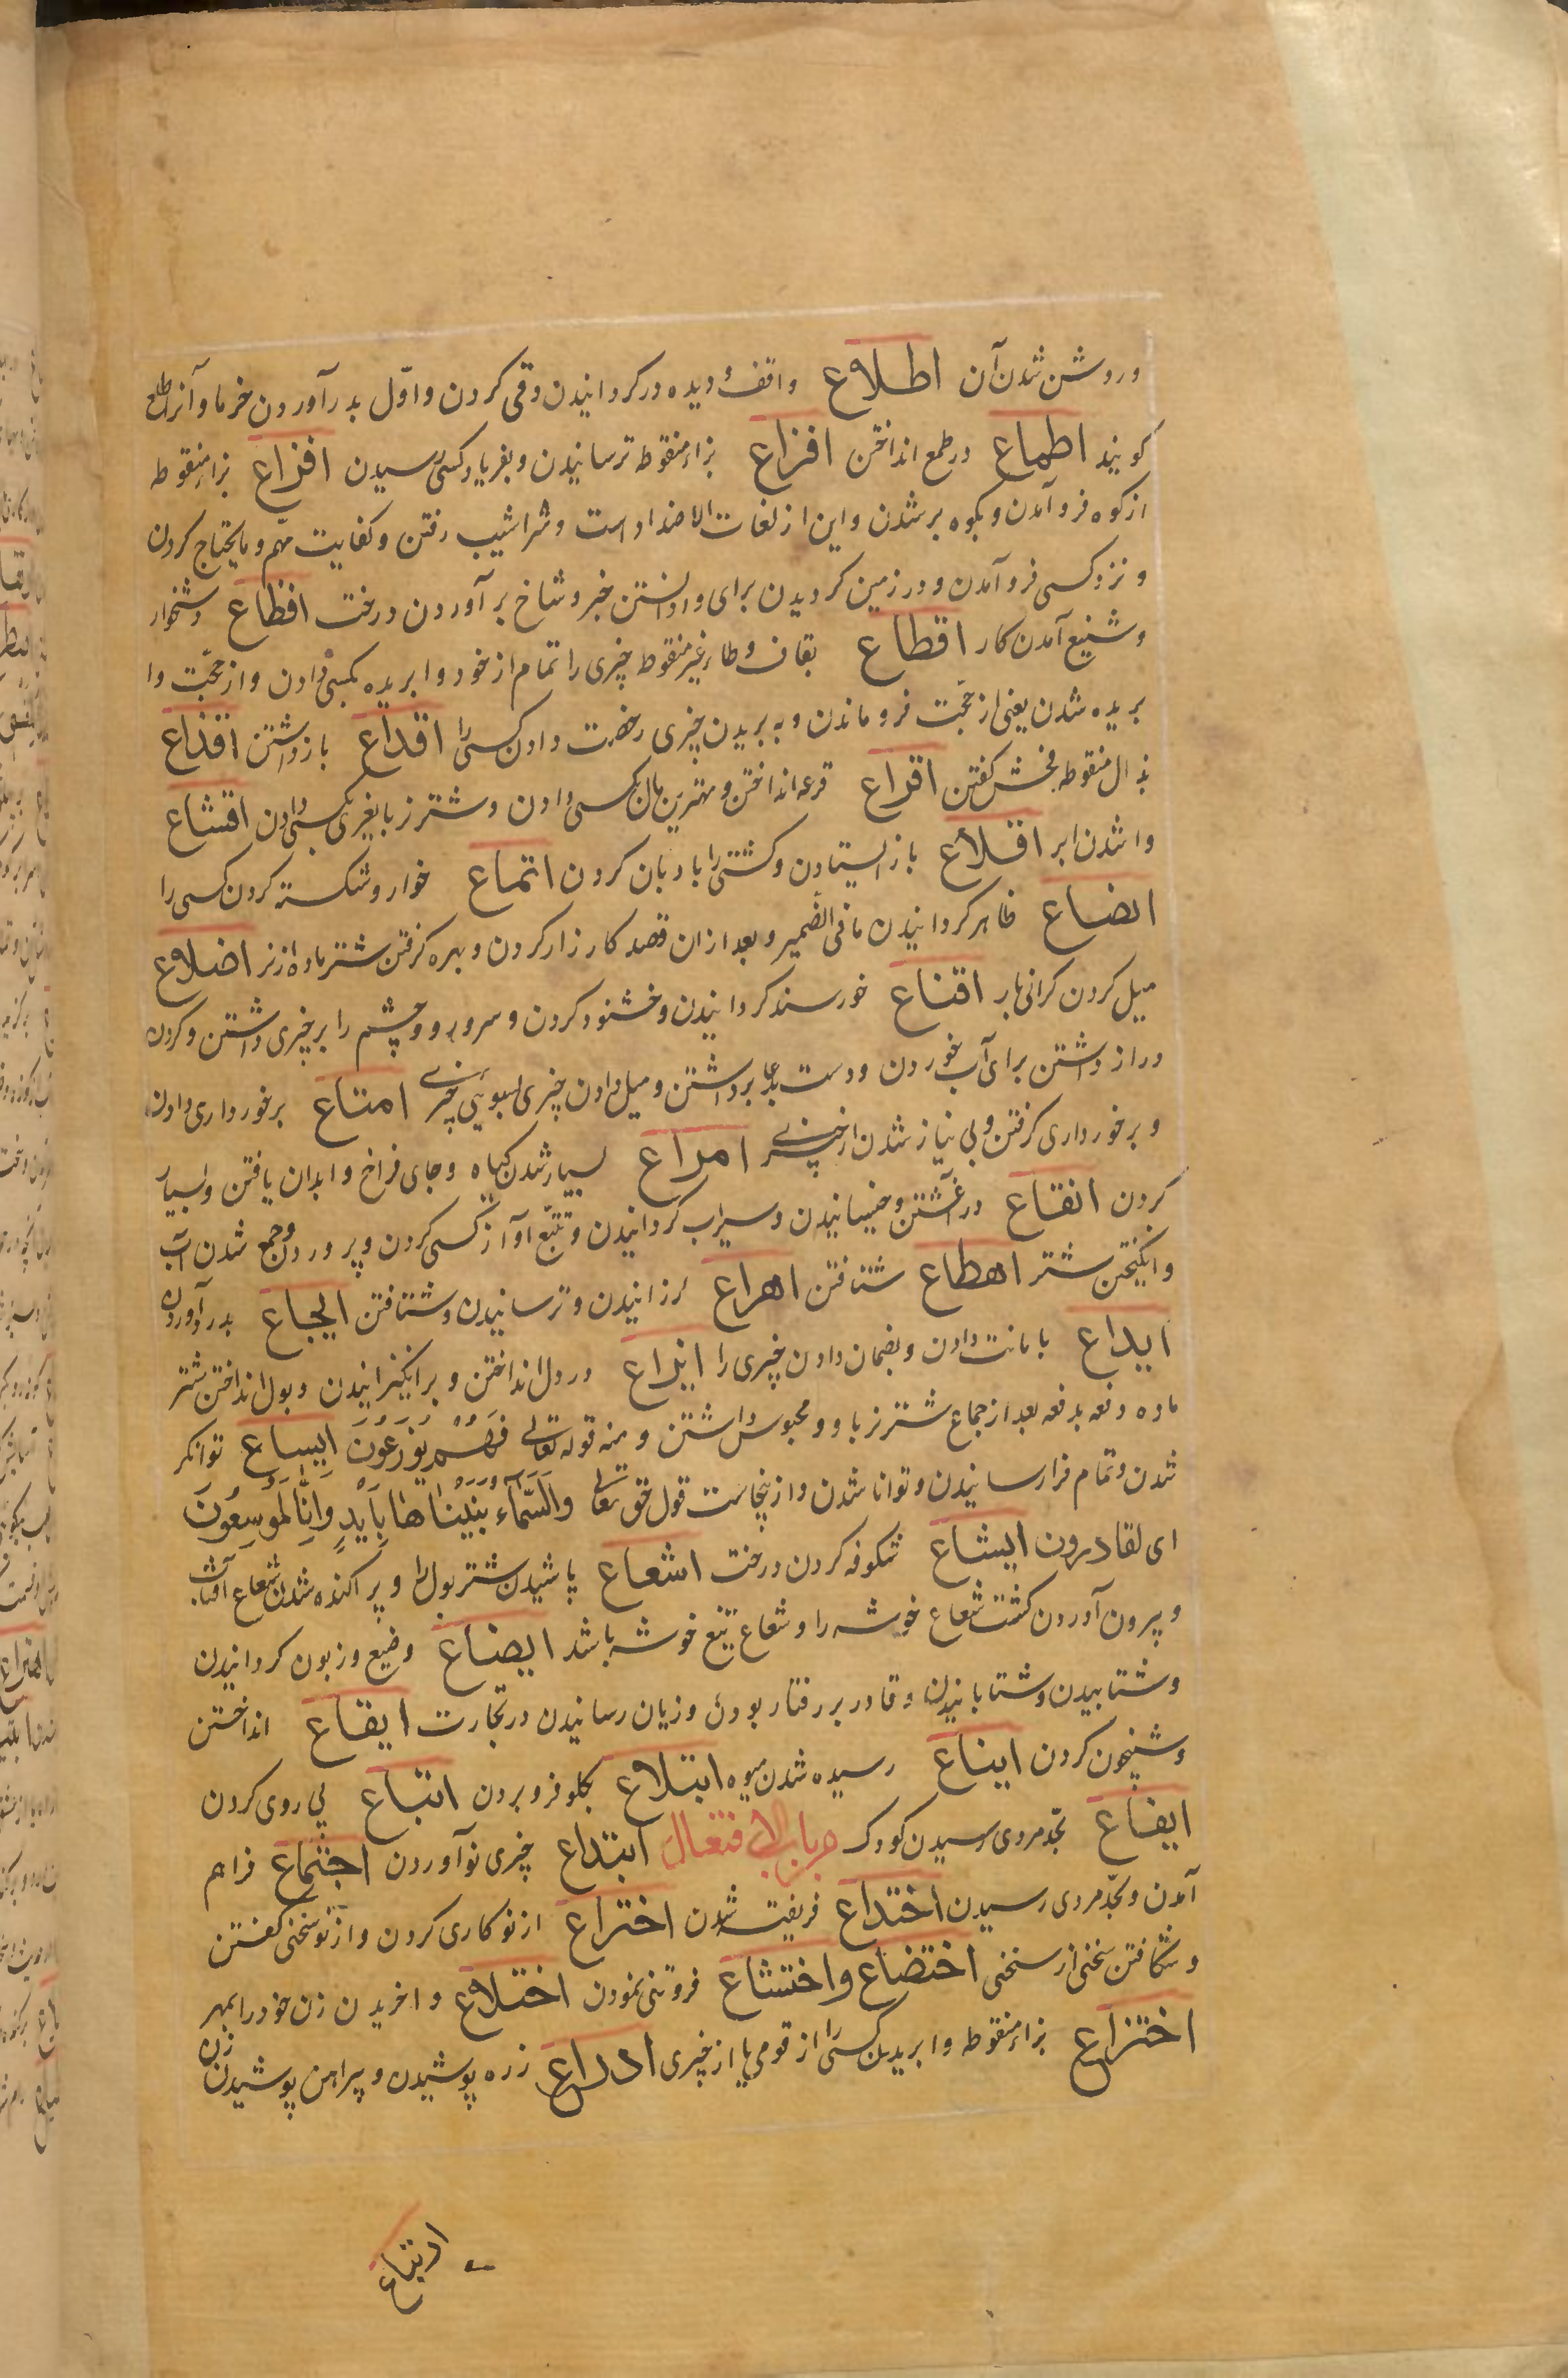 و روشن شدن آن اطلاع واقف و دیده ور کردانیدن و قی کردن و اول بدر آوردن خرما و آنرا طلع
کویند اطماع در طمع انداختن افزاع بزاء منقوطه ترسانیدن و بفریاد کسی رسیدن افراع براء منقوطه
از کوه فرو آمدن و بکوه بر شدن و این از لغات الاضداد است و سراشیب رفتن و کفایت مهم و مایحتاج کردن
و نزد کسی فرو آمدن و در زمین کردیدن برای وادانستن خبر و شاخ بر آوردن درخت افظاع دشخوار
و شنیع آمدن کار اقطاع بقاف و طاء غیر منقوط چیزی را تمام از خود وا بریده بکسی دادن و از حجت وا
بریده شدن یعنی از حجت فرو ماندن و به بریدن چیزی رخصت دادن کسی را اقداع باز داشتن اقذاع
بذال منقوطه فحش کفتن اقراع قرعه انداختن و بهترین مال بکسی دادن و شتر نر بانبری بکسی دادن اقشاع
وا شدن ابر اقلاع باز ایستادن و کشتی را بادبان کردن اتماع خوار و شکسته کردن کسی را
ابضاع ظاهر کردانیدن مافی الضمیر و بعد ازان قصد کارزار کردن و بهره کرفتن شتر ماده از نر اضلاع
میل کردن کرانی بار اقناع خورسند کردانیدن و خشنود کردن و سر و رو و چشم را بر چیزی داشتن و کردن
دراز داشتن برای آب خوردن و دست بدعا برداشتن و میل دادن چیزی بسوی چیزی امتاع برخورداری دادن
و برخورداری کرفتن و بی نیاز شدن از چیزی امراع بسیار شدن کیاه و جای فراخ و ابدان یافتن و بسیار
کردن انقاع در آغشتن و خیسانیدن و سیراب کردانیدن و تتبع آواز کسی کردن و پروردن و جمع شدن آب
و انکیختن شتر اهطاع شتافتن اهراع لرزانیدن و ترسانیدن و شتافتن ایجاع بدرد آوردن
ایداع بامانت دادن و بضمان دادن چیزی را ایزاع در دل انداختن و بر انکیزانیدن و بول انداختن شتر
ماده دفعه بدفعه بعد از جماع شتر نر با او و محبوس داشتن و منه قوله تعالی فهم یوزعون ایساع توانکر
شدن و تمام فرا رسانیدن و توانا شدن و ازینجاست قول حق تعالی وَالسَّمَاءَ بَنَیْنَاهَا بِاَیْدٍ وَاِنَّا لَمُوسِعُونَ
ای لقادرون ایشاع شکوفه کردن درخت اشعاع پاشیدن شتر بول را و پراکنده شدن شعاع آفتاب
و بیرون آوردن کشت شعاع خوشه را و شعاع تیغ خوشه باشد ایضاع وضیع و زبون کردانیدن
و شتابیدن و شتابانیدن و قادر بر رفتار بودن و زیان رسانیدن در تجارت ایقاع انداختن
و شبیخون کردن ایناع رسیده شدن میوه ابتلاع بکلو فرو بردن اتباع پی روی کردن
ایفاع بحد مردی رسیدن کودک من باب الافتعال ابتداع چیزی نو آوردن اجتماع فراهم
آمدن و بحد مردی رسیدن اختداع فریفته شدن اختراع از نو کاری کردن و از نو سخنی کفتن
و شکافتن سخنی از سخنی اختضاع و اختشاع فروتنی نمودن اختلاع وا خریدن زن خود را بمهر
اختزاع بزاء منقوطه وا بریدن کسی را از قومی یا از چیزی ادراع زره پوشیدن و پیراهن پوشیدن زن
ارتباع